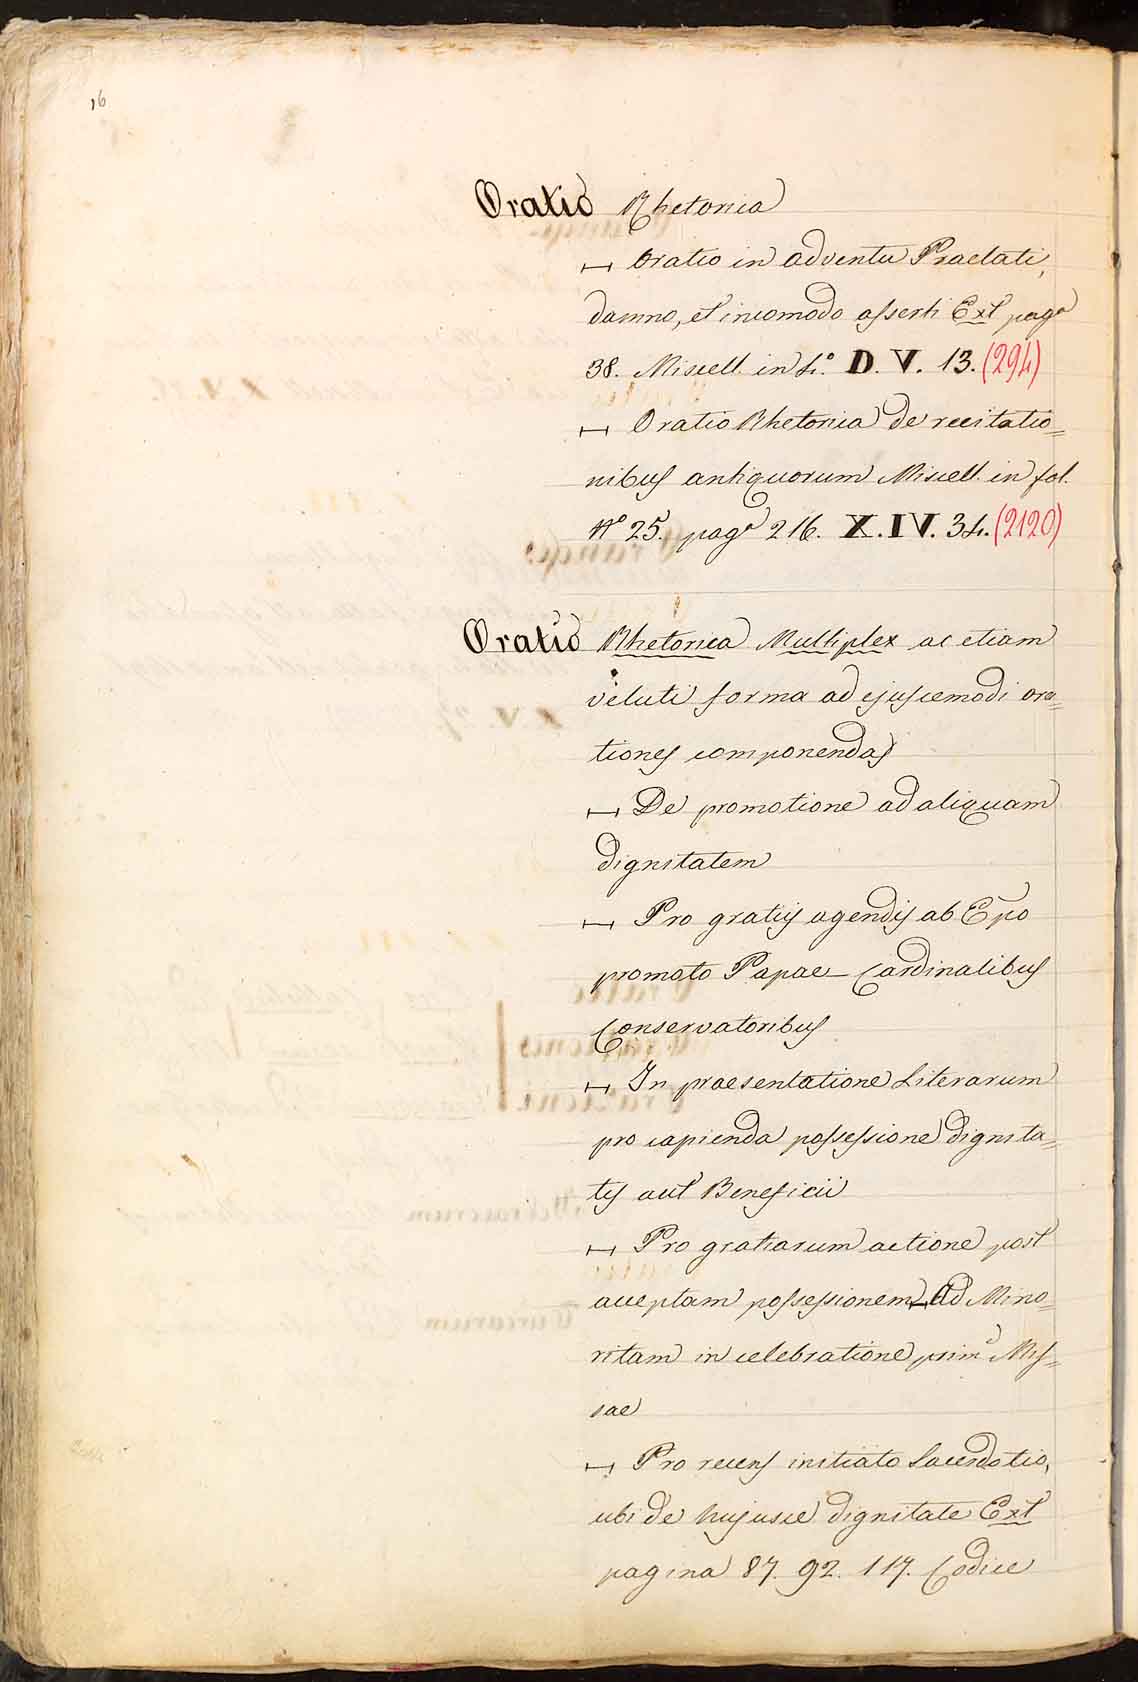 16
Oratio Rhetorica
⊢⊣ Oratio in adventu Praelati,
damno, et incomodo asserti Ext pagª
38. Miscell. in 4.º D. V. 13. (294)
⊢⊣ Oratio Rhetorica de recitatio=
nibus antiquorum Miscell. in fol.
Nº 25. pagª 216. X. IV. 34. (2120)
Oratio Rhetorica Multiplex ac etiam
veluti forma ad ejuscemodi ora=
tiones componendas
⊢⊣ De promotione ad aliquam
dignitatem
⊢⊣ Pro gratiis agendis ab Epo
promoto Papae – Cardinalibus
Conservatoribus
⊢⊣ In praesentatione Literarum
pro capienda possessione dignita=
tis aut Beneficii
⊢⊣ Pro gratiarum actione post
acceptam possessionem – Ad Mino=
ritam in celebratione prim.ᵉ Mis=
sae
⊢⊣ Pro recens initiato Sacerdotio,
ubi de hujusce dignitate Ext
pagina 87. 92. 117. Codice